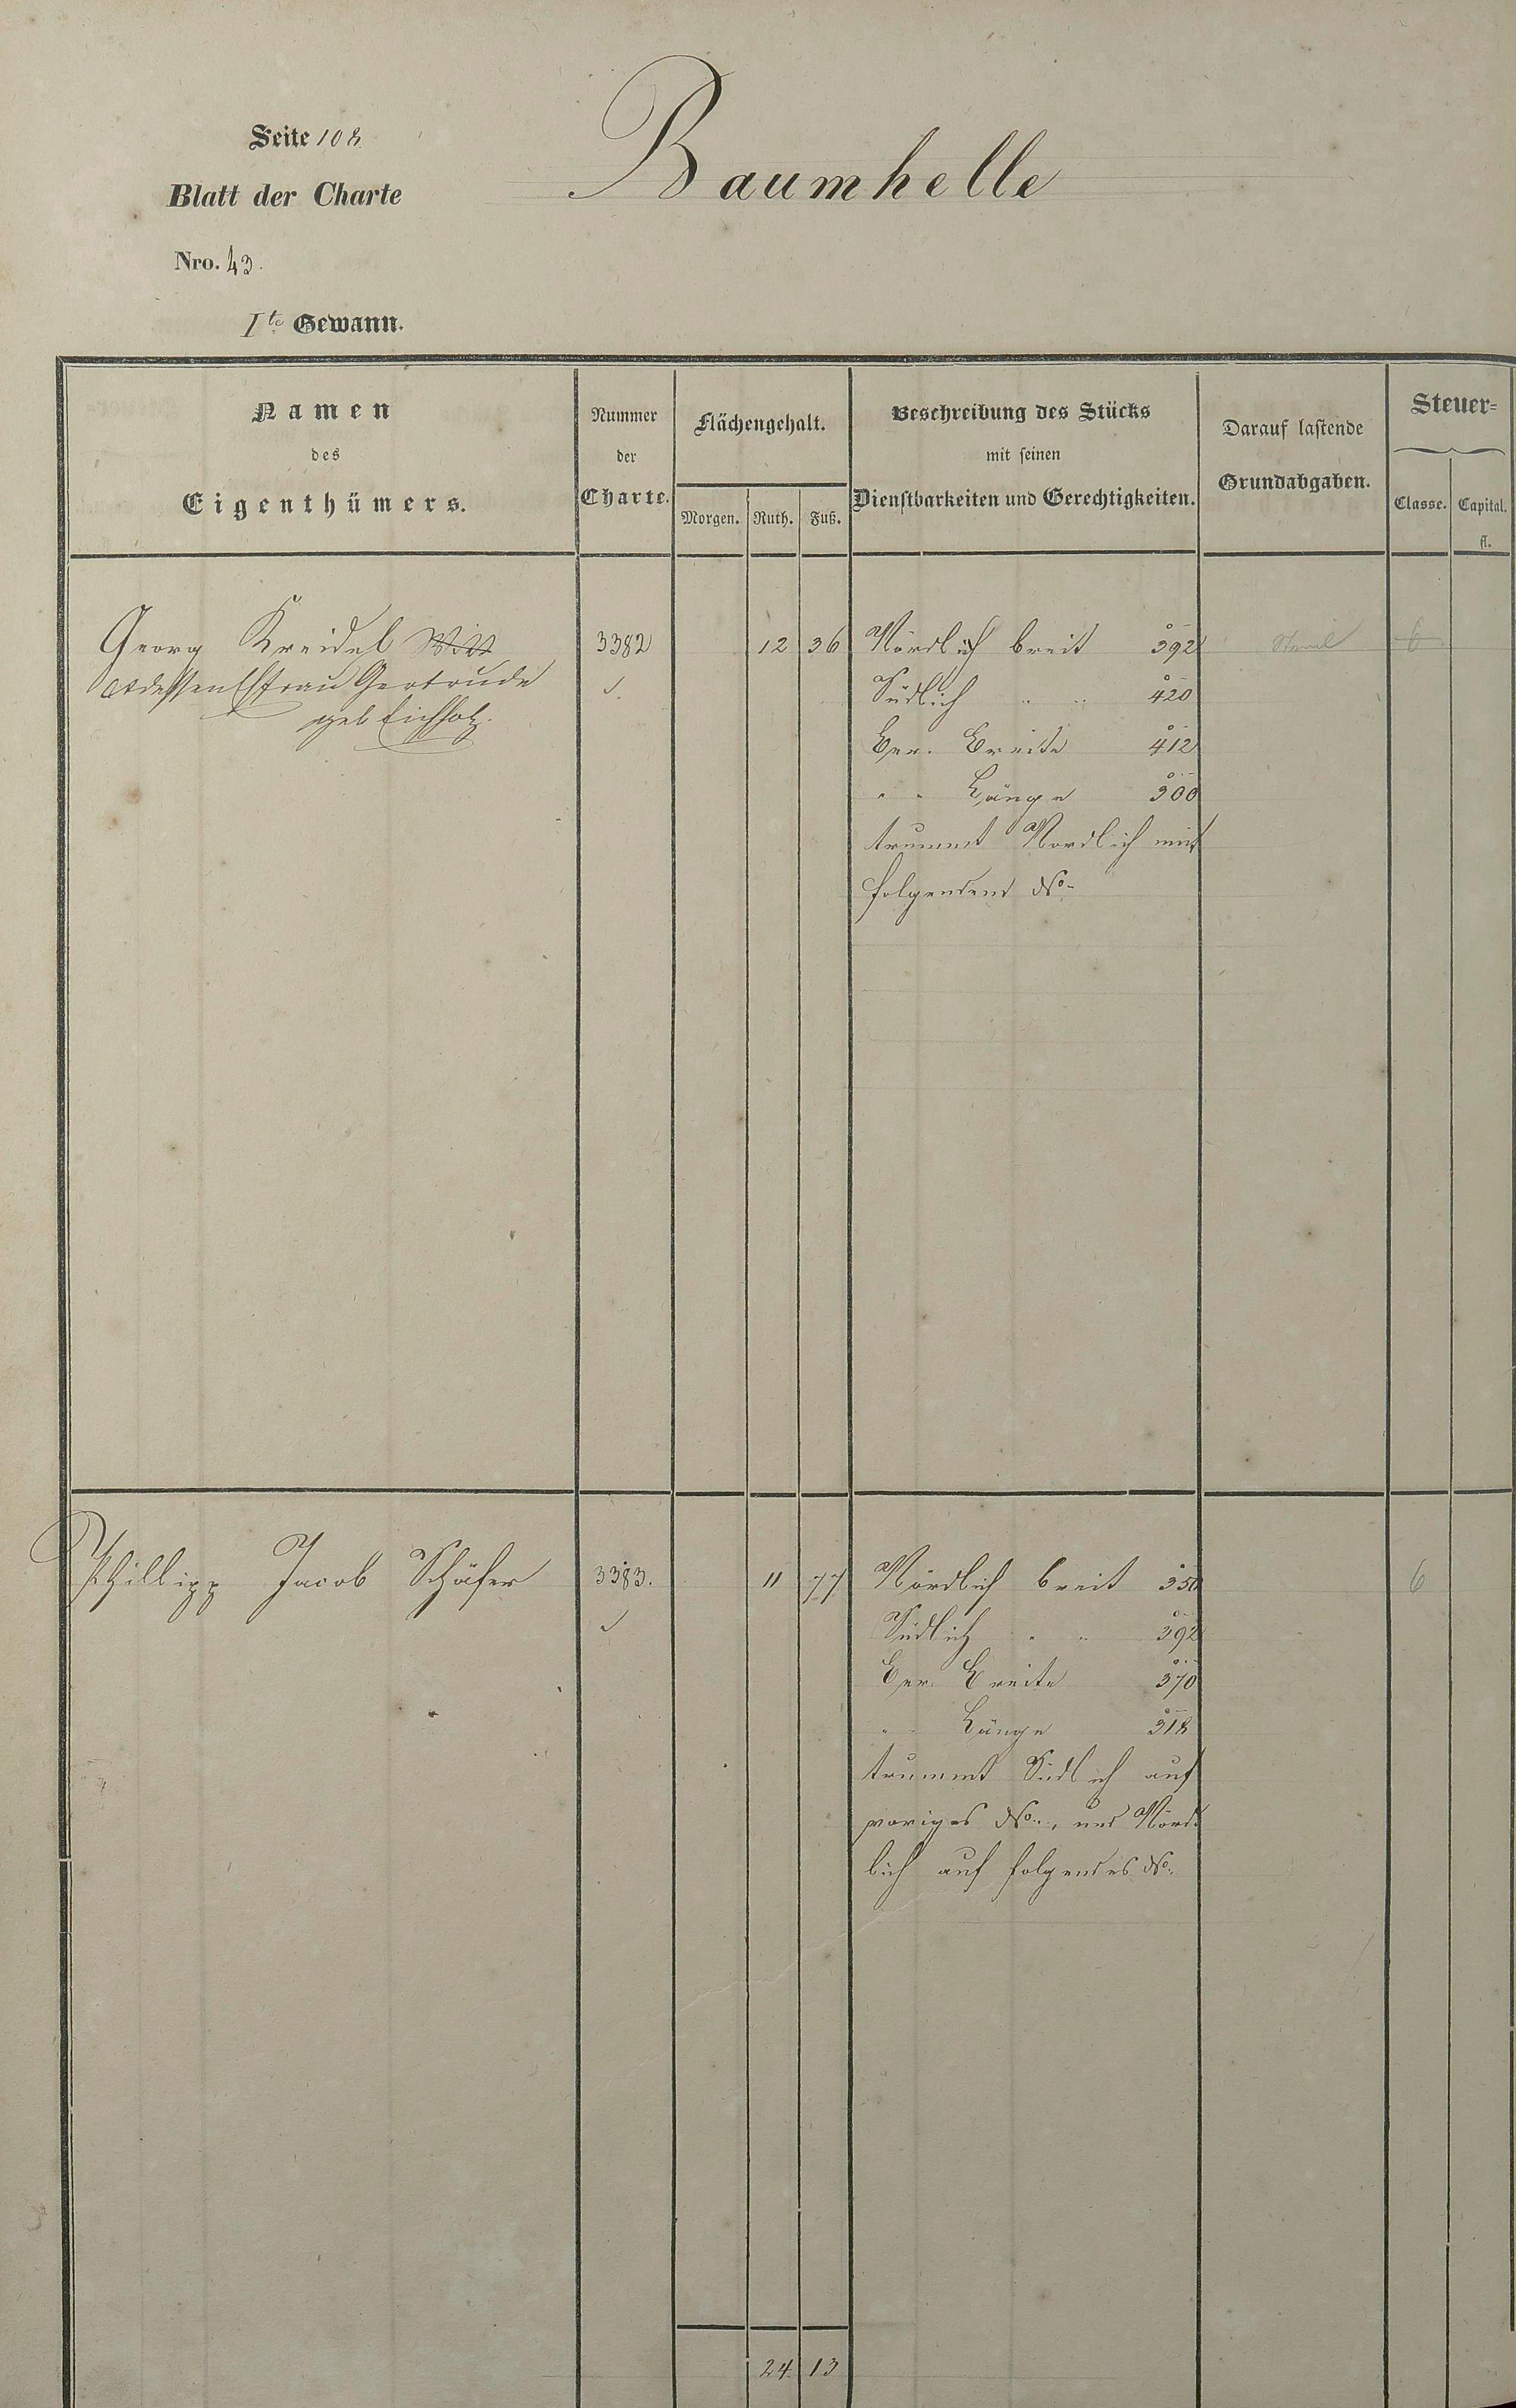 Seite 108
Baumhelle
Blatt der Charte
Nro. 43.
Ite Gewann.
Namen
des
Eigenthümers.
Nummer
der
Charte.
Flächengehalt.
Morgen. Ruth. Fuß.
Beschreibung des Stücks
mit seinen
Dienstbarkeiten und Gerechtigkeiten.
Darauf lastende
Grundabgaben.
Steuer=
Classe. Capital.
fl.
Georg Kreidel 3382 12 36 Nördlich breit 392 6
dessen Efrau Gertrude Südlich " " 420
geb Eichholz. Ber. Breite 412
" " Länge 300
trummt Nordlich mit
folgendend No
Phillipp Jacob Schäfer 3383. 11 77 Nördlich breit 350 6
Südlich " " 392
Ber. Breite 370
" " Länge 318
trummt Südlich auf
voriges No., und Nörd=
lich auf folgendes No.
24 13